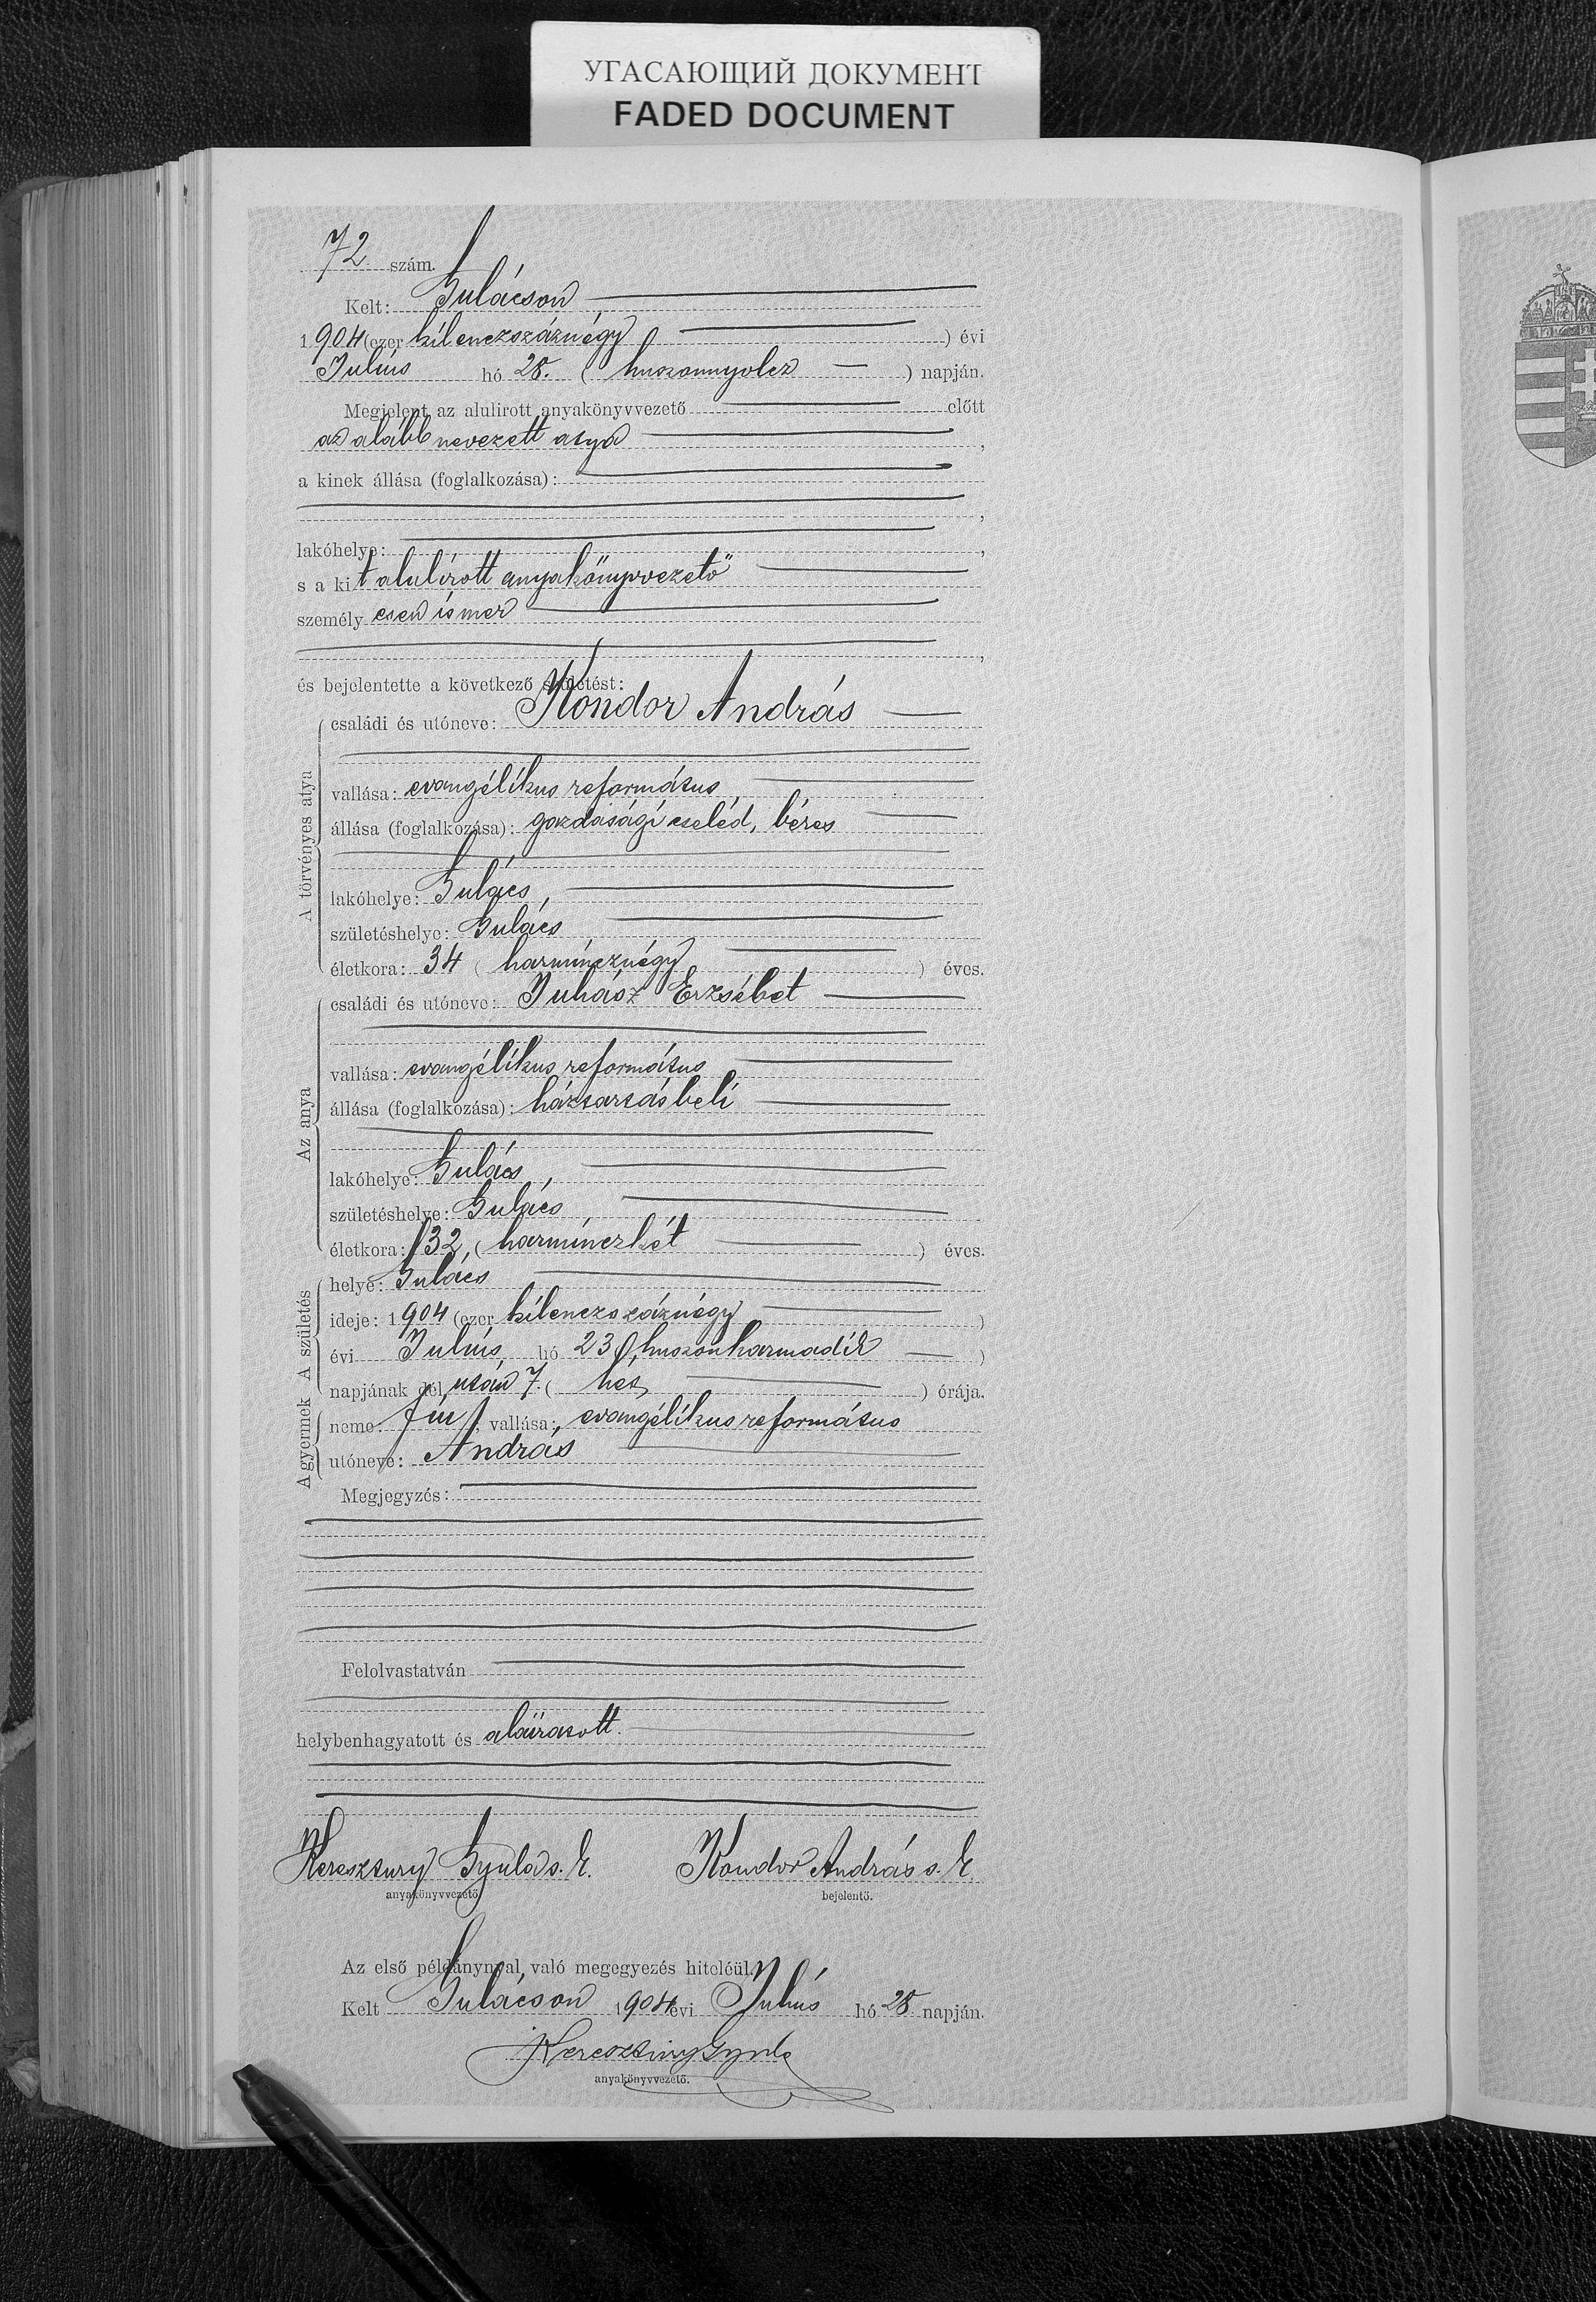 УГАСАЮЩИЙ ДОКУМЕНТ
FADED DOCUMENT
72 szám.
Kelt: Gulácson
1904 (ezer kilenczszáznégy ) évi
Julius hó 28. ( huszonnyolcz ) napján.
Megjelent az alulirott anyakönyvvezető előtt
az alább nevezett atya ,
a kinek állása (foglalkozása):
,
lakóhelye: ,
s a kit alulírott anyakönyvvezető
személyesen ismer
,
és bejelentette a következő születést:
A törvényes atya
családi és utóneve: Kondor András
vallása: evangélikus református
állása (foglalkozása): gazdasági cseléd, béres
lakóhelye: Gulács,
születéshelye: Gulács
életkora: 34 ( harmincznégy ) éves.
Az anya
családi és utóneve: Juhász Erzsébet
vallása: evangélikus református
állása (foglalkozása): háztartásbeli
lakóhelye: Gulács,
születéshelye: Gulács
életkora: 32, ( harminczkét ) éves.
A születés
helye: Gulács
ideje: 1904 (ezer kilenczszáznégy )
évi Julius, hó 23 (huszonharmadik )
napjának dél után 7. ( hét, ) órája.
A gyermek
neme: fiu, vallása: evangélikus református
utóneve: András
Megjegyzés:
Felolvastatván
helybenhagyatott és aláíratott.
Keresztury Gyula s. k. Kondor András s. k.
anyakönyvvezető bejelentő.
Az első példánynyal való megegyezés hiteléül.
Kelt Gulácson 1904 évi Julius hó 28 napján.
Keresztury Gyula
anyakönyvvezető.